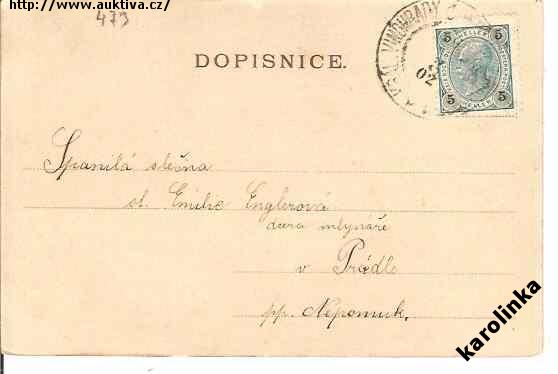 http://www.auktiva.cz/
479
DOPISNICE.
KRÁL. VINOHRADY
02
5 HELLER 5
5 HELLER 5
Spanilá slečna
sl. Emilie Englerová
dcera mlynáře
v Prádle
pp. Nepomuk.
karolinka